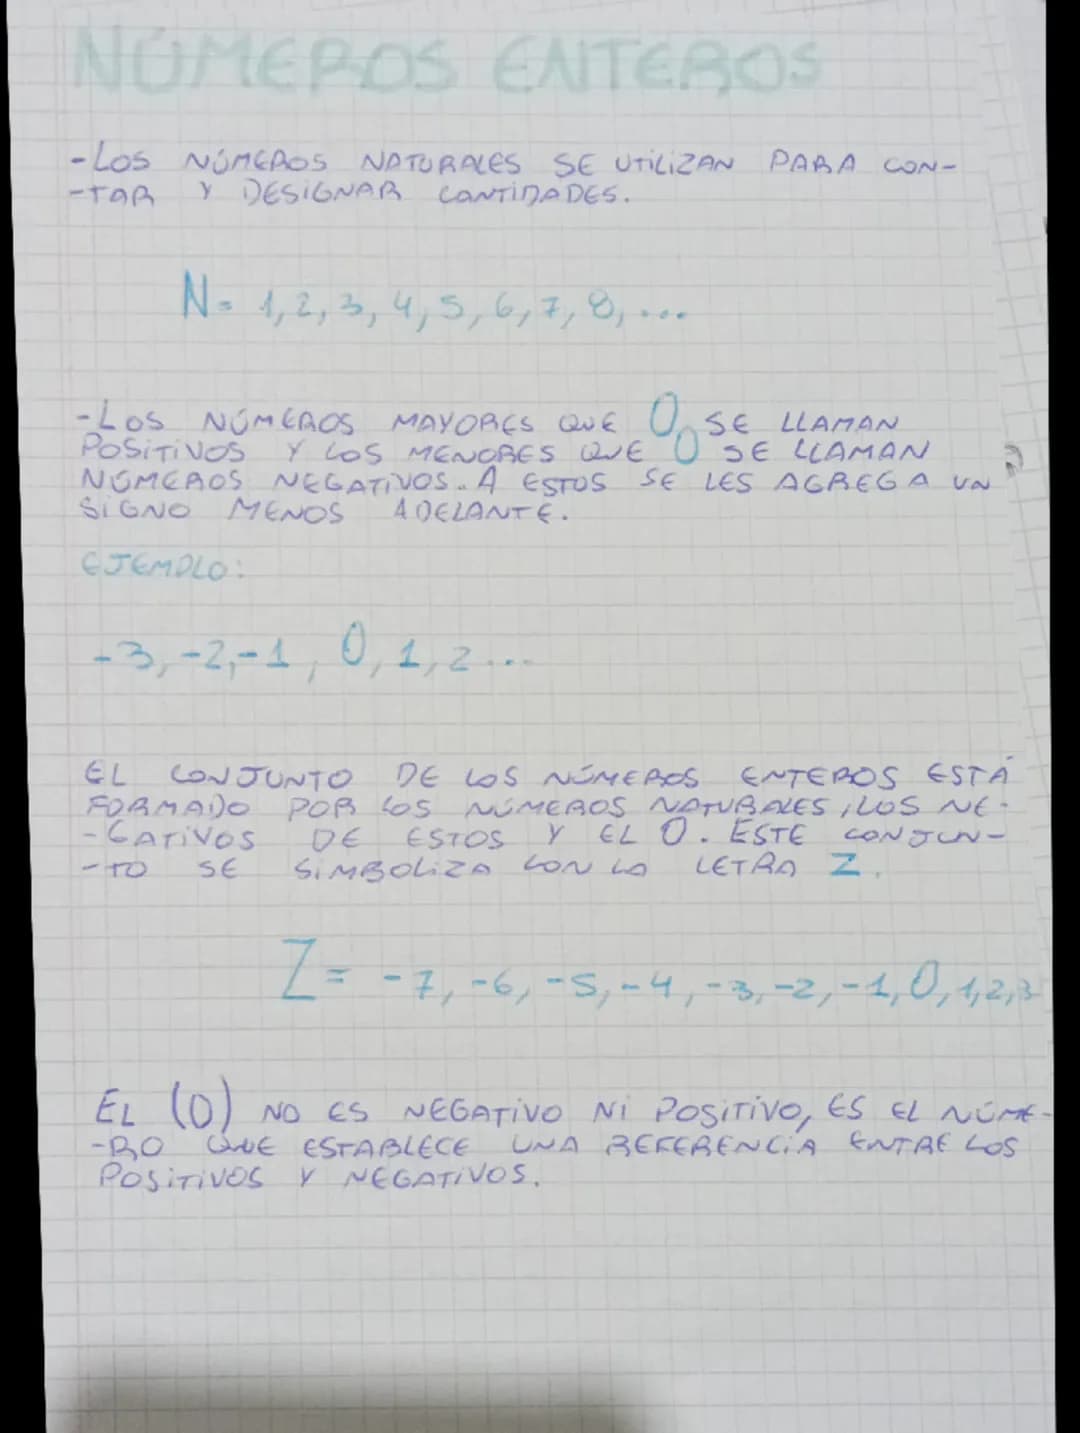 NÚMEROS ENTEROS
-LOS NÚMEROS NATURALES SE UTILIZAN PARA CON-
-TAR Y DESIGNAR CANTIDADES.
N= 1,2,3,4,5,6,7,8,...
-LOS NÚMEROS MAYORES QUE 0 SE LLAMAN
POSITIVOS Y LOS MENORES QUE 0 SE LLAMAN
NÚMEROS NEGATIVOS. A ESTOS SE LES AGREGA UN
SIGNO MENOS ADELANTE.
EJEMPLO:
-3,-2,-1, 0, 1, 2...
EL CONJUNTO DE LOS NÚMEROS ENTEROS ESTÁ
FORMADO POR LOS NÚMEROS NATURALES, LOS NE-
-GATIVOS DE ESTOS Y EL 0. ESTE CONJUN-
-TO SE SIMBOLIZA CON LA LETRA Z.
Z= -7,-6,-5,-4,-3,-2,-1,0,1,2,3
EL (0) NO ES NEGATIVO NI POSITIVO, ES EL NÚME-
-RO QUE ESTABLECE UNA REFERENCIA ENTRE LOS
POSITIVOS Y NEGATIVOS.